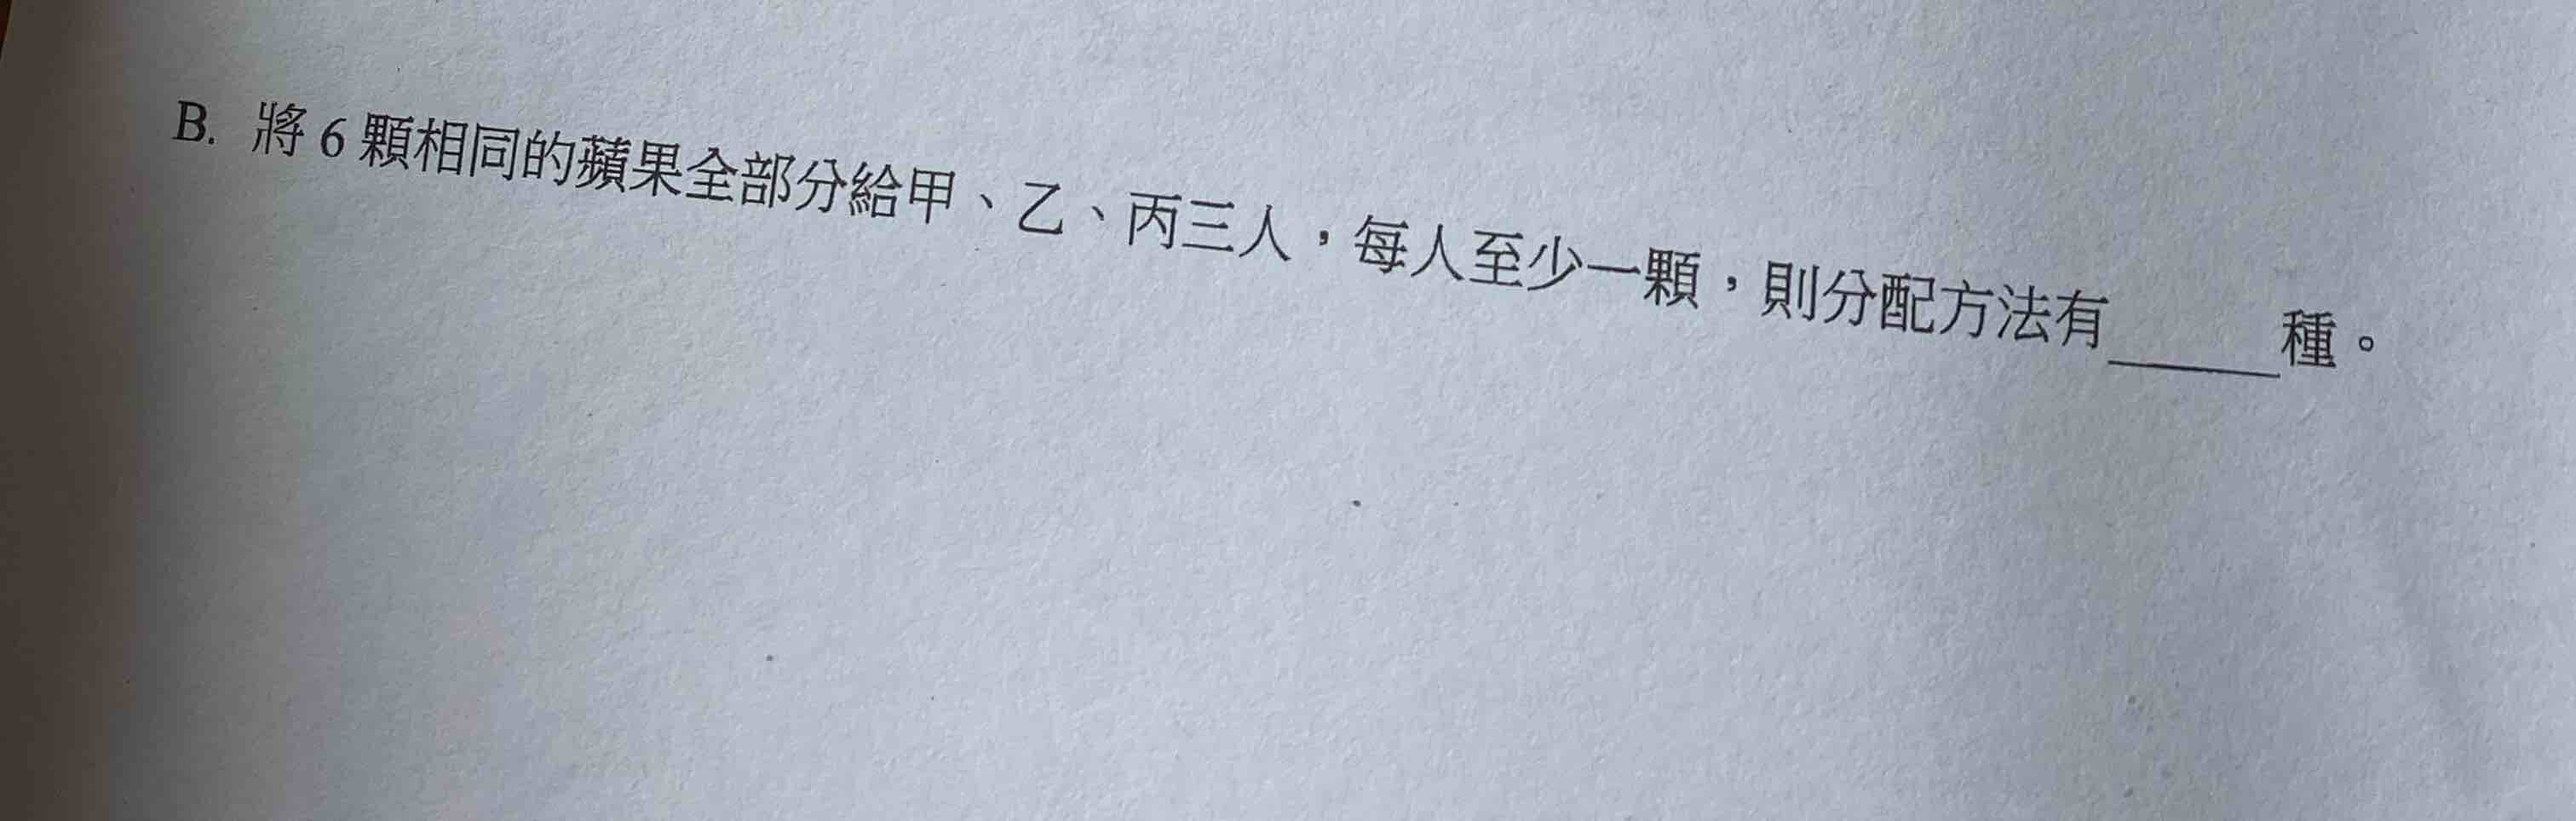 B. 將 6 顆相同的蘋果全部分給甲、乙、丙三人，每人至少一顆，則分配方法有_____種。